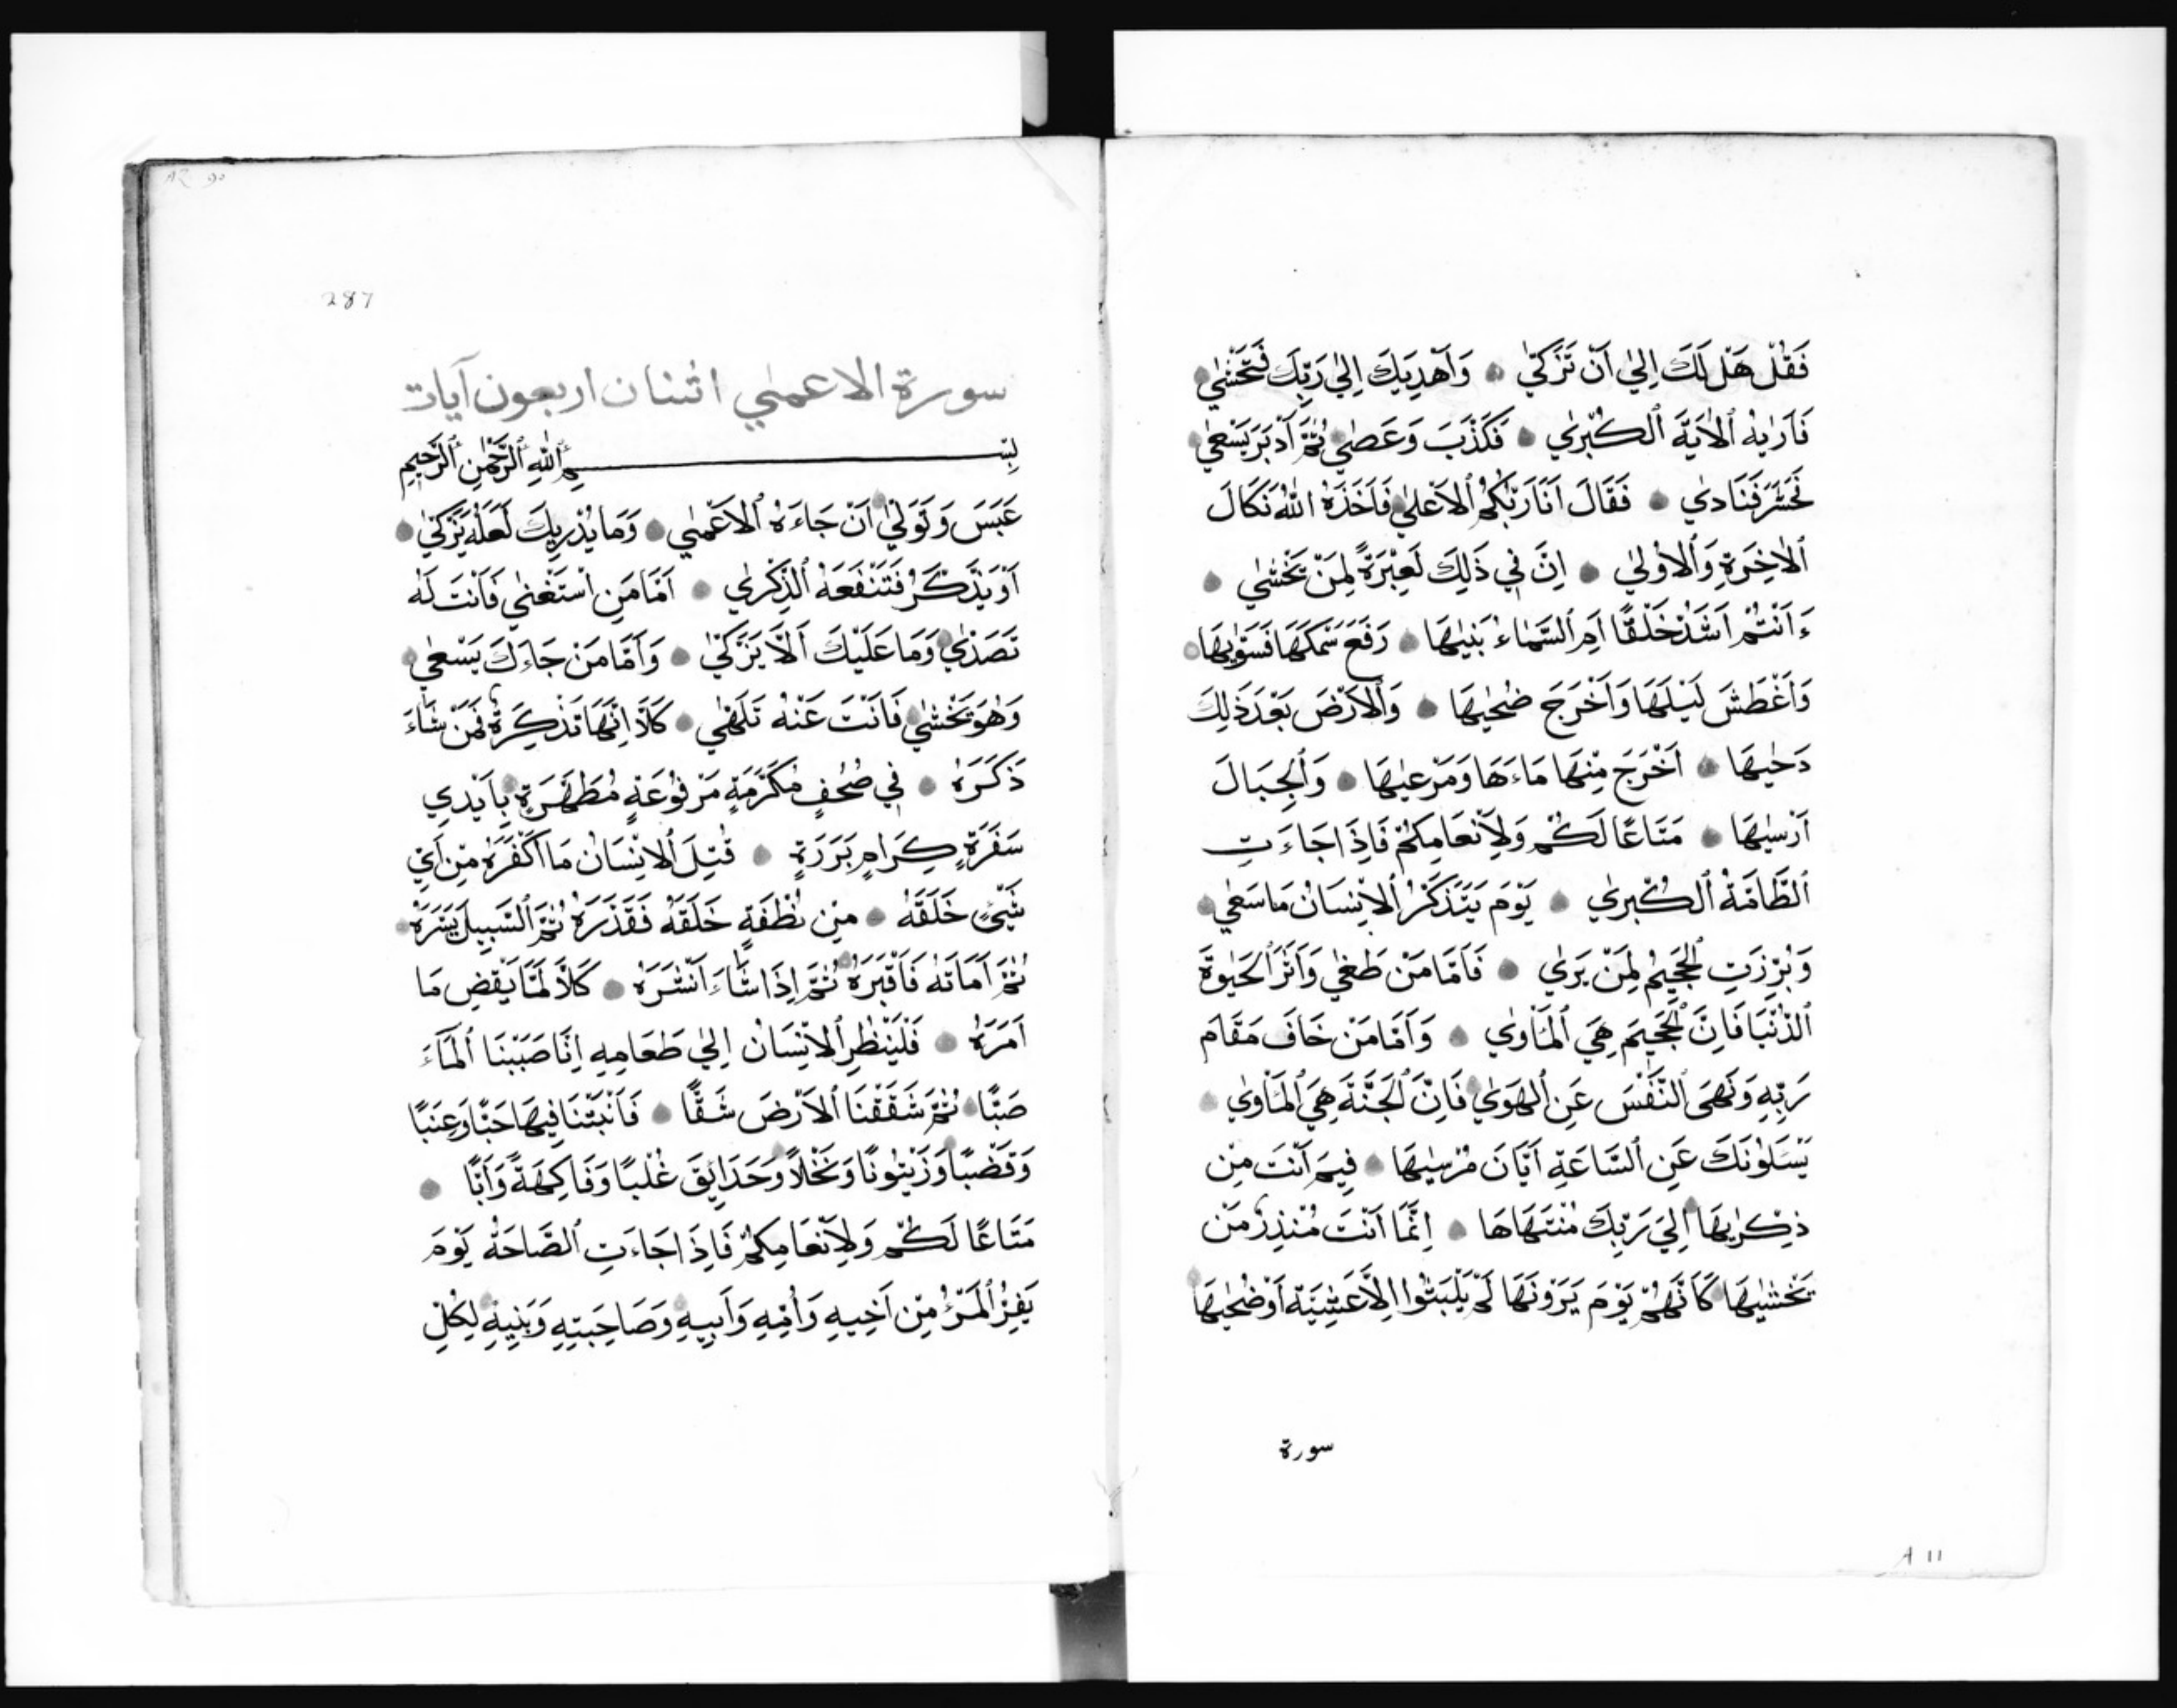 فَقُلْ هَلْ لَكَ اِلٰي اَنْ تَزَكّٰي ● وَاَهْدِيَكَ اِلٰي رَبِّكَ فَتَخْشٰي ●
فَاَرٰيهُ ٱلْاٰيَةَ ٱلْكُبْرٰي ● فَكَذَّبَ وَعَصٰي ● ثُمَّ اَدْبَرَ يَسْعٰي ●
فَحَشَرَ فَنَادٰي ● فَقَالَ اَنَا رَبُّكُمُ ٱلْاَعْلٰي ● فَاَخَذَهُ اللّٰهُ نَكَالَ
ٱلْاٰخِرَةِ وَٱلْاُوْلٰي ● اِنَّ فِي ذٰلِكَ لَعِبْرَةً لِمَنْ يَخْشٰي ●
ءَاَنْتُمْ اَشَدُّ خَلْقًا اَمِ ٱلسَّمَاءُ بَنٰيهَا ● رَفَعَ سَمْكَهَا فَسَوّٰيهَا ●
وَاَغْطَشَ لَيْلَهَا وَاَخْرَجَ ضُحٰيهَا ● وَٱلْاَرْضَ بَعْدَ ذٰلِكَ
دَحٰيهَا ● اَخْرَجَ مِنْهَا مَاءَهَا وَمَرْعٰيهَا ● وَٱلْجِبَالَ
اَرْسٰيهَا ● مَتَاعًا لَكُمْ وَلِاَنْعَامِكُمْ فَاِذَا جَاءَتِ
ٱلطَّامَّةُ ٱلْكُبْرٰي ● يَوْمَ يَتَذَكَّرُ ٱلْاِنْسَانُ مَا سَعٰي ●
وَبُرِّزَتِ ٱلْجَحِيْمُ لِمَنْ يَرٰي ● فَاَمَّا مَنْ طَغٰي وَاٰثَرَ ٱلْحَيٰوةَ
ٱلدُّنْيَا فَاِنَّ ٱلْجَحِيْمَ هِيَ ٱلْمَأْوٰي ● وَاَمَّا مَنْ خَافَ مَقَامَ
رَبِّهِ وَنَهَى ٱلنَّفْسَ عَنِ ٱلْهَوٰي ● فَاِنَّ ٱلْجَنَّةَ هِيَ ٱلْمَأْوٰي ●
يَسْـَٔلُوْنَكَ عَنِ ٱلسَّاعَةِ اَيَّانَ مُرْسٰيهَا ● فِيمَ اَنْتَ مِنْ
ذِكْرٰيهَا ● اِلَيٰ رَبِّكَ مُنْتَهَاهَا ● اِنَّمَا اَنْتَ مُنْذِرُ مَنْ
يَخْشٰيهَا ● كَاَنَّهُمْ يَوْمَ يَرَوْنَهَا لَمْ يَلْبَثُوْا اِلَّا عَشِيَّةً اَوْ ضُحٰيهَا ●
سورة
A 11
287
سورة الاعمٰي اثننان اربعون آيات
بِسْمِ ٱللّٰهِ ٱلرَّحْمٰنِ ٱلرَّحِيْمِ
عَبَسَ وَتَوَلّٰي ● اَنْ جَاءَهُ ٱلْاَعْمٰي ● وَمَا يُدْرِيكَ لَعَلَّهُ يَزَّكّٰي ●
اَوْ يَذَّكَّرُ فَتَنْفَعَهُ ٱلذِّكْرٰي ● اَمَّا مَنِ اسْتَغْنٰي فَاَنْتَ لَهُ
تَصَدّٰي ● وَمَا عَلَيْكَ اَلَّا يَزَّكّٰي ● وَاَمَّا مَنْ جَاءَكَ يَسْعٰي ●
وَهُوَ يَخْشٰي ● فَاَنْتَ عَنْهُ تَلَهّٰي ● كَلَّا اِنَّهَا تَذْكِرَةٌ فَمَنْ شَاءَ
ذَكَرَهُ ● فِي صُحُفٍ مُكَرَّمَةٍ مَرْفُوْعَةٍ مُطَهَّرَةٍ ● بِاَيْدِي
سَفَرَةٍ كِرَامٍ بَرَرَةٍ ● قُتِلَ ٱلْاِنْسَانُ مَا اَكْفَرَهُ مِنْ اَيِّ
شَيْءٍ خَلَقَهُ ● مِنْ نُطْفَةٍ خَلَقَهُ فَقَدَّرَهُ ثُمَّ ٱلسَّبِيلَ يَسَّرَهُ ●
ثُمَّ اَمَاتَهُ فَاَقْبَرَهُ ● ثُمَّ اِذَا شَاءَ اَنْشَرَهُ ● كَلَّا لَمَّا يَقْضِ مَا
اَمَرَهُ ● فَلْيَنْظُرِ ٱلْاِنْسَانُ اِلٰي طَعَامِهِ اِنَّا صَبَبْنَا ٱلْمَاءَ
صَبًّا ● ثُمَّ شَقَقْنَا ٱلْاَرْضَ شَقًّا ● فَاَنْبَتْنَا فِيهَا حَبًّا وَعِنَبًا
وَقَضْبًا ● وَزَيْتُوْنًا وَنَخْلًا ● وَحَدَائِقَ غُلْبًا وَفَاكِهَةً وَاَبًّا ●
مَتَاعًا لَكُمْ وَلِاَنْعَامِكُمْ فَاِذَا جَاءَتِ ٱلصَّاخَةُ يَوْمَ
يَفِرُّ ٱلْمَرْءُ مِنْ اَخِيهِ وَاُمِّهِ وَاَبِيهِ ● وَصَاحِبَتِهِ وَبَنِيهِ ● لِكُلِّ